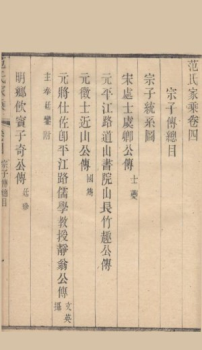 范氏家乘卷四
宗子傳總目
宗子統系圖
宋處士處卿公傳 士夔
元平江路道山書院山長竹趣公傳
元徵士近山公傳 國雋
元將仕佐郎平江路儒學教授靜翁公傳 文英
主奉廷鑾附
明鄉飲賓子奇公傳